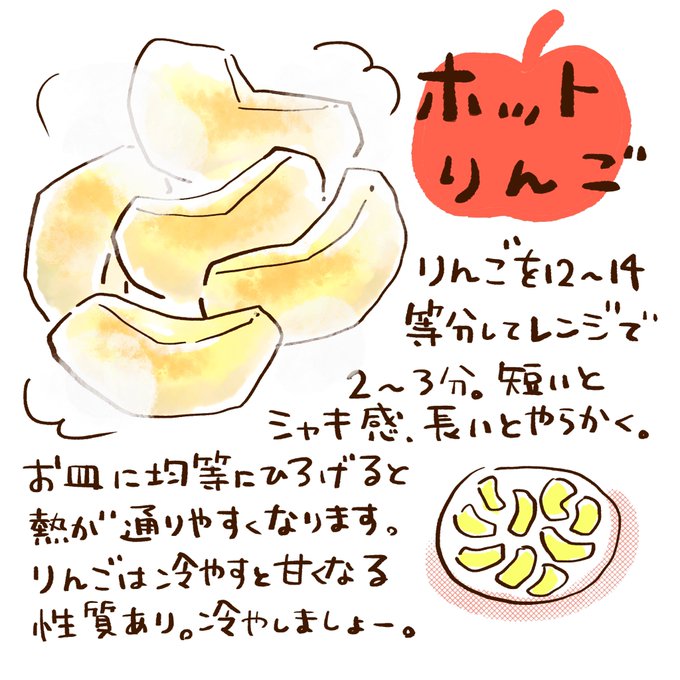 ホット
りんご
りんごを12〜14
等分してレンジで
2〜3分。短いと
シャキ感、長いとやらかく。
お皿に均等にひろげると
熱が通りやすくなります。
りんごは冷やすと甘くなる
性質あり。冷やしましょー。